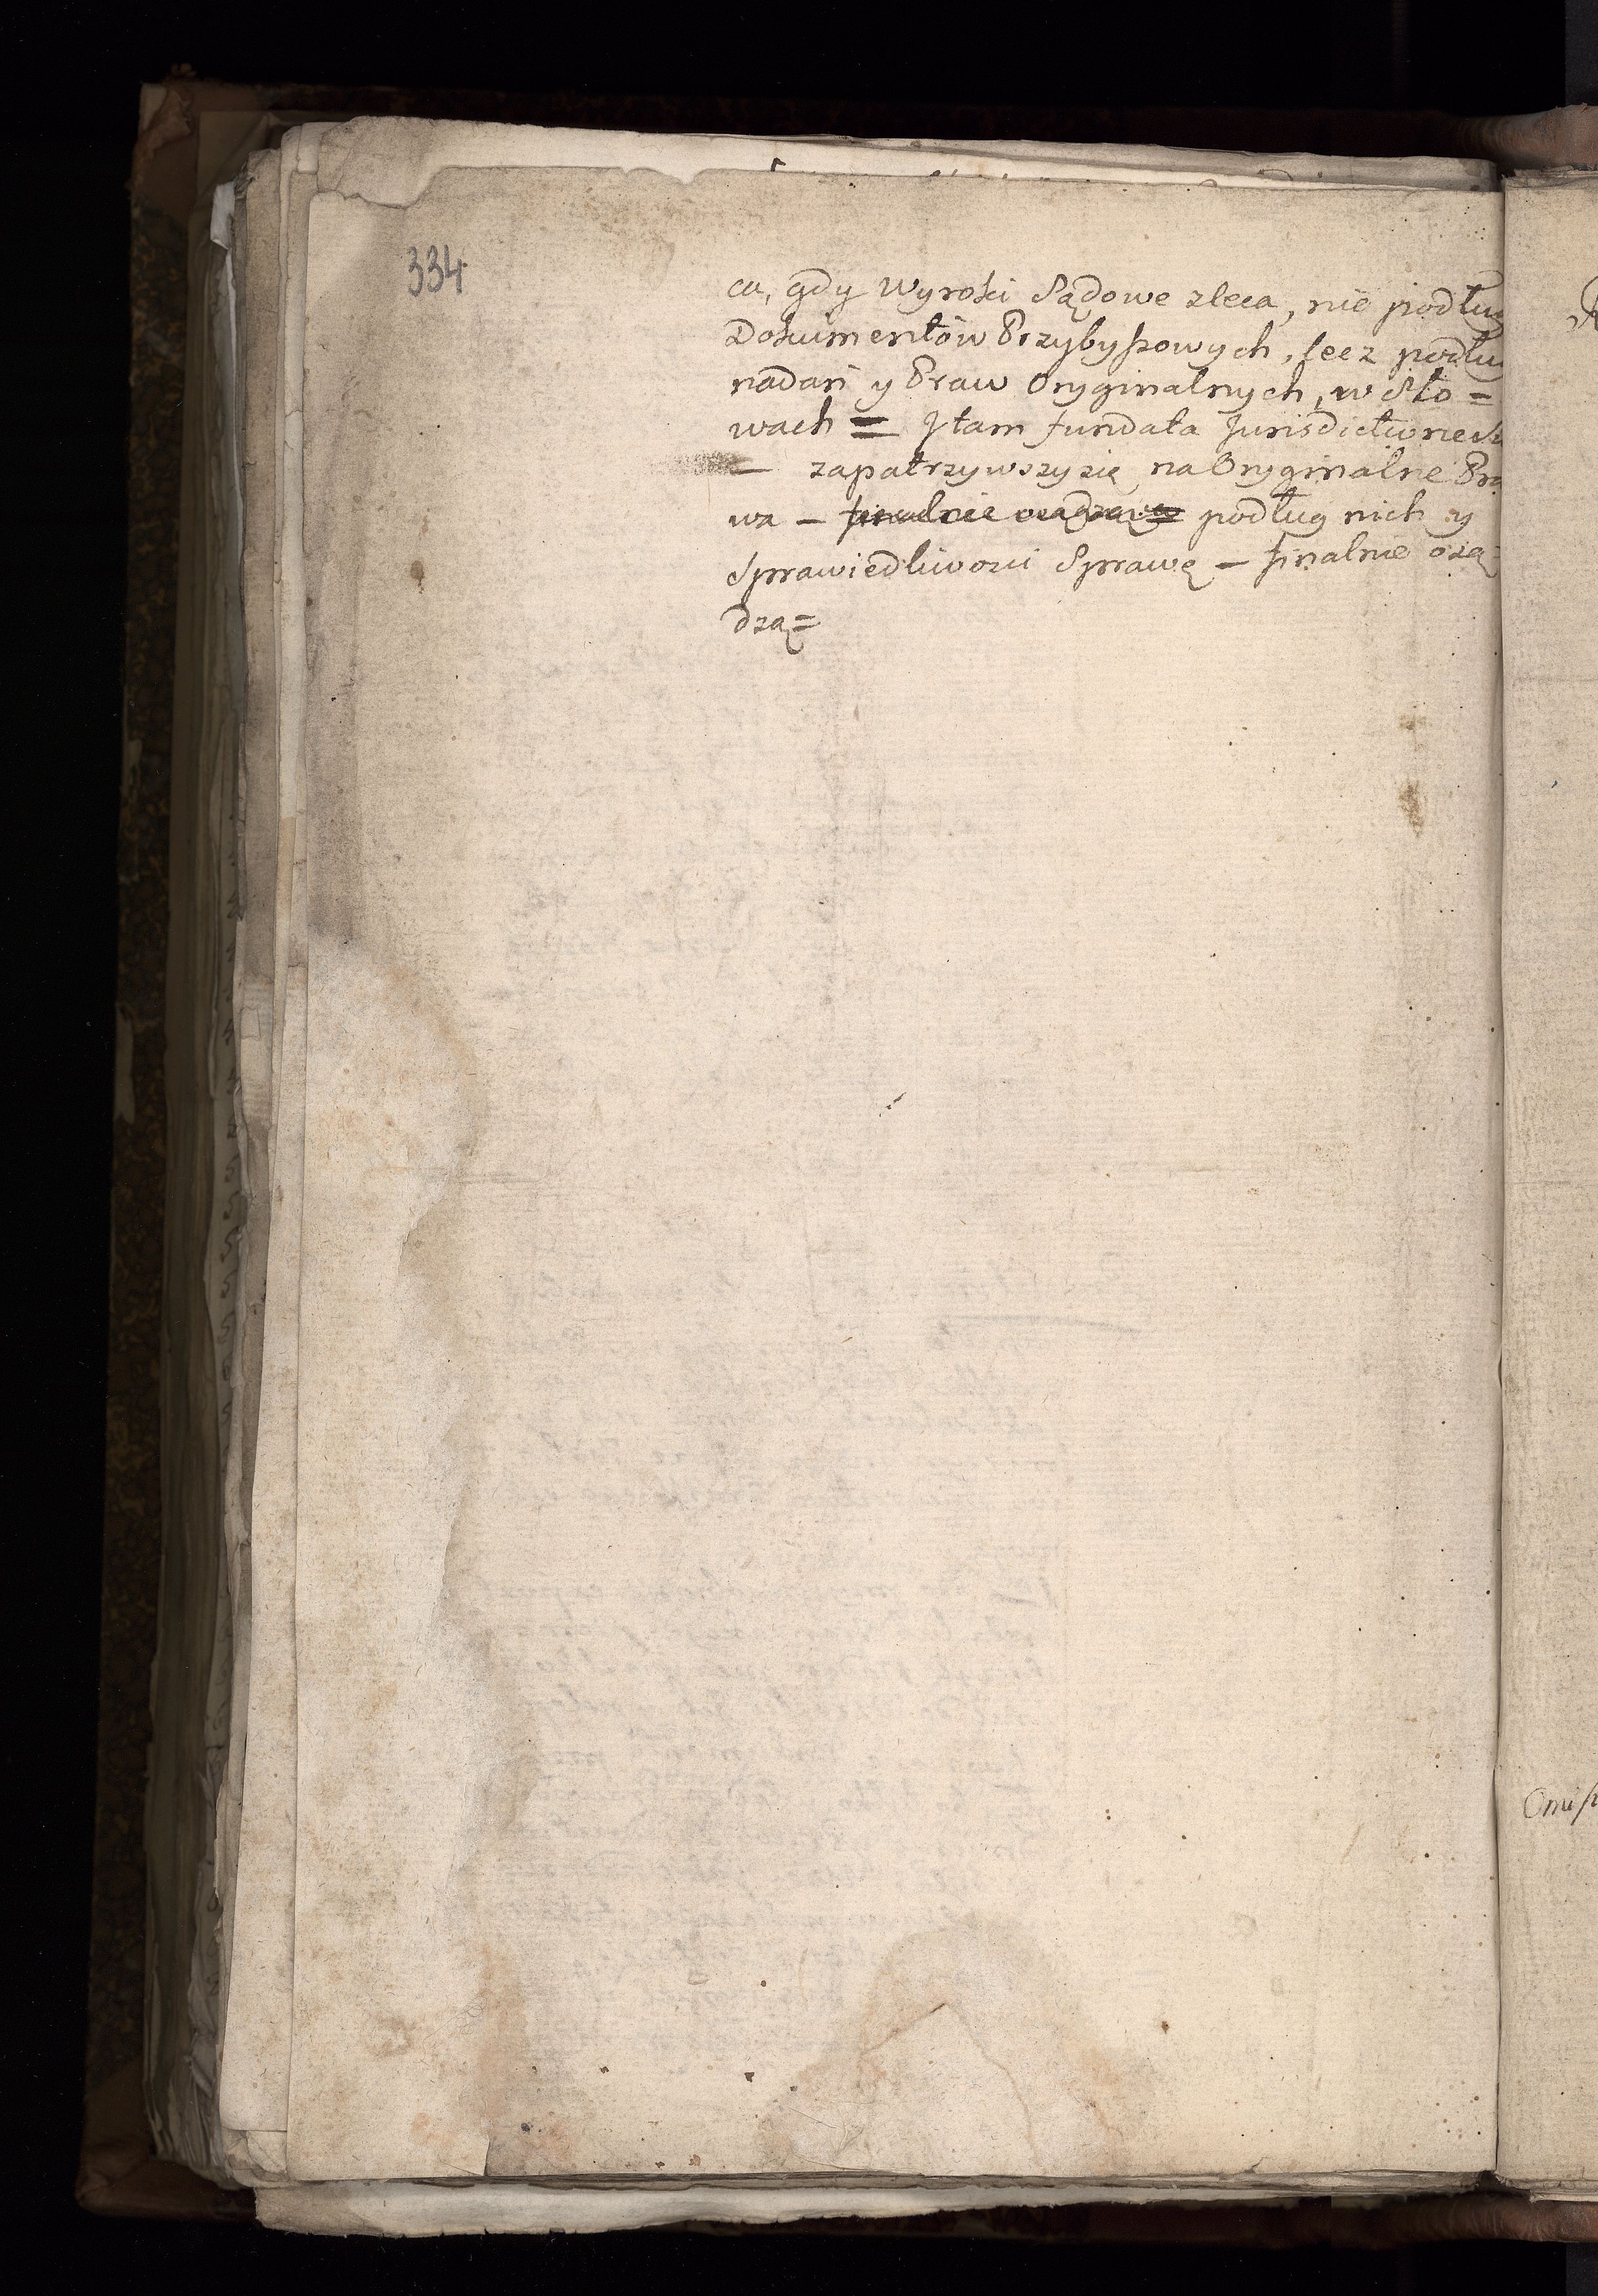 334
ca, gdy Wyroki Sądowe zleca, nie podług
Dokumentów Przybyszowych, lecz podłu
nadań y Praw Oryginalnych, w Sło=
wach = Jtam fundata Jurisdictione
— zapatrzywszy się na Oryginalne Pra
wa — finalnie osądzą = podług nich y
Sprawiedliwości Sprawę — finalnie osą=
dzą =
Omiſ